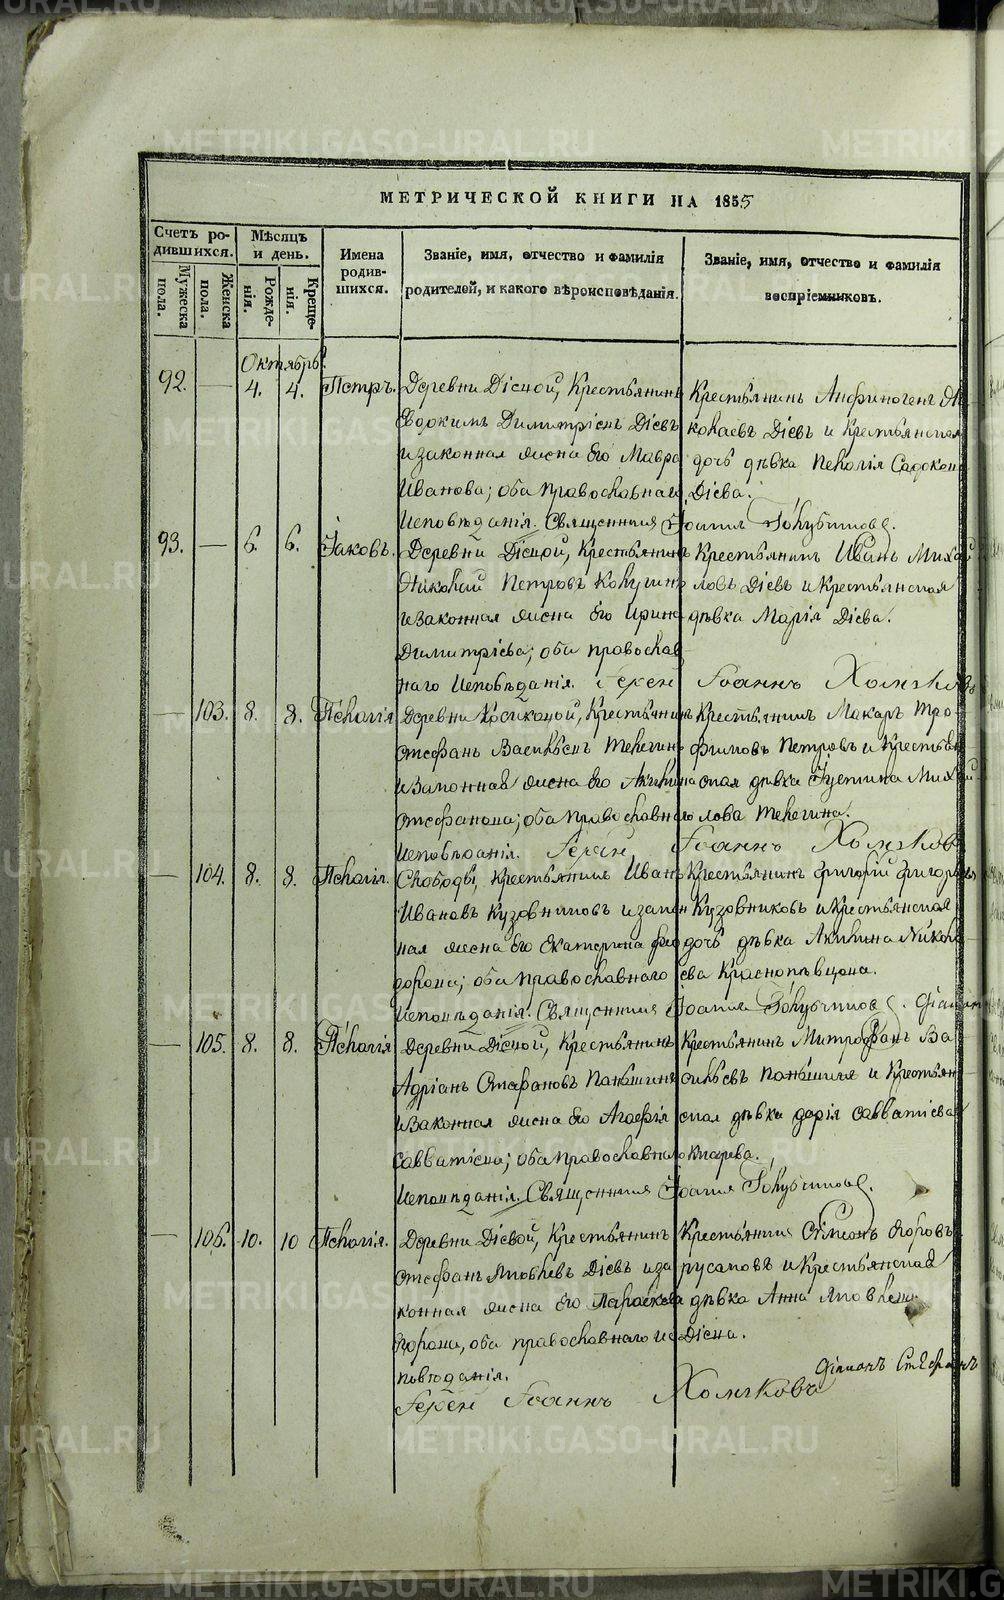 МЕТРИЧЕСКОЙ КНИГИ НА 1855
Счетъ ро-
дившихся.
Мужеска пола.
Женска пола.
Мѣсяцъ
и день.
Рожде-
нія.
Креще-
нія.
Имена
родив-
шихся.
Званіе, имя, отчество и фамилія
родителей, и какого вѣроисповѣданія.
Званіе, имя, отчество и фамилія
воспріемниковъ.
Октябрь.
92. — 4. 4. Петръ. Деревни Діевой, Крестьянинъ
Евдокимъ Димитріевъ Діевъ
и законная жена его Мавра
Иванова; оба православнаго
Исповѣданія. Священникъ Іоаннъ Голубчиковъ.
Крестьянинъ Анфиногенъ Ни-
колаевъ Діевъ и Крестьянская
дочь дѣвка Пелагія
Діева.
93. — 6. 6. Іаковъ. Деревни Діевой, Крестьянинъ
Николай Петровъ
и законная жена его Ирина
Димитріева; оба православ-
наго Исповѣданія. Іерей Іоаннъ Хомяковъ
Крестьянинъ Иванъ Михай-
ловъ Діевъ и Крестьянская
дѣвка Марія Діева.
— 103. 8. 8. Пелагія Деревни Крестьянинъ
Стефанъ Васильевъ Телегинъ
и Законная жена его Акилина
Стефанова; оба православнаго
Исповѣданія. Іерей Іоаннъ Хомяковъ
Крестьянинъ Макаръ Тро-
фимовъ Петровъ и Крестьян-
ская дѣвка Іустина Михай-
лова Телегина.
— 104. 8. 8. Пелагія. Слободы, Крестьянинъ Иванъ
Ивановъ Кузовниковъ и закон-
ная жена его Екатерина Фео-
дорова; оба православнаго
Исповѣданія. Священникъ Іоаннъ Голубчиковъ.
Крестьянинъ Григорій Григорьевъ
Кузовниковъ и Крестьянская
дочь дѣвка Акилина Никола-
ева Краснопѣвцова.
— 105. 8. 8. Пелагія Деревни Діевой, Крестьянинъ
Адріанъ Стефановъ Паньшинъ
и Законная жена его Агафія
Савватіева; оба православнаго
Исповѣданія. Священникъ Іоаннъ Голубчиковъ.
Крестьянинъ Митрофанъ Ва-
сильевъ Паньшинъ и Крестьян-
ская дѣвка Дарія Савватіева
— 106. 10. 10 Пелагія. Деревни Діевой, Крестьянинъ
Стефанъ Яковлевъ Діевъ и за-
конная жена его Параскева
оба православнаго ис-
повѣданія.
Іерей Іоаннъ Хомяковъ
Крестьянинъ Симеонъ Егоровъ
Русаковъ и Крестьянская
дѣвка Анна Яковлева
Діева.
METRIKI.GASO-URAL.RU